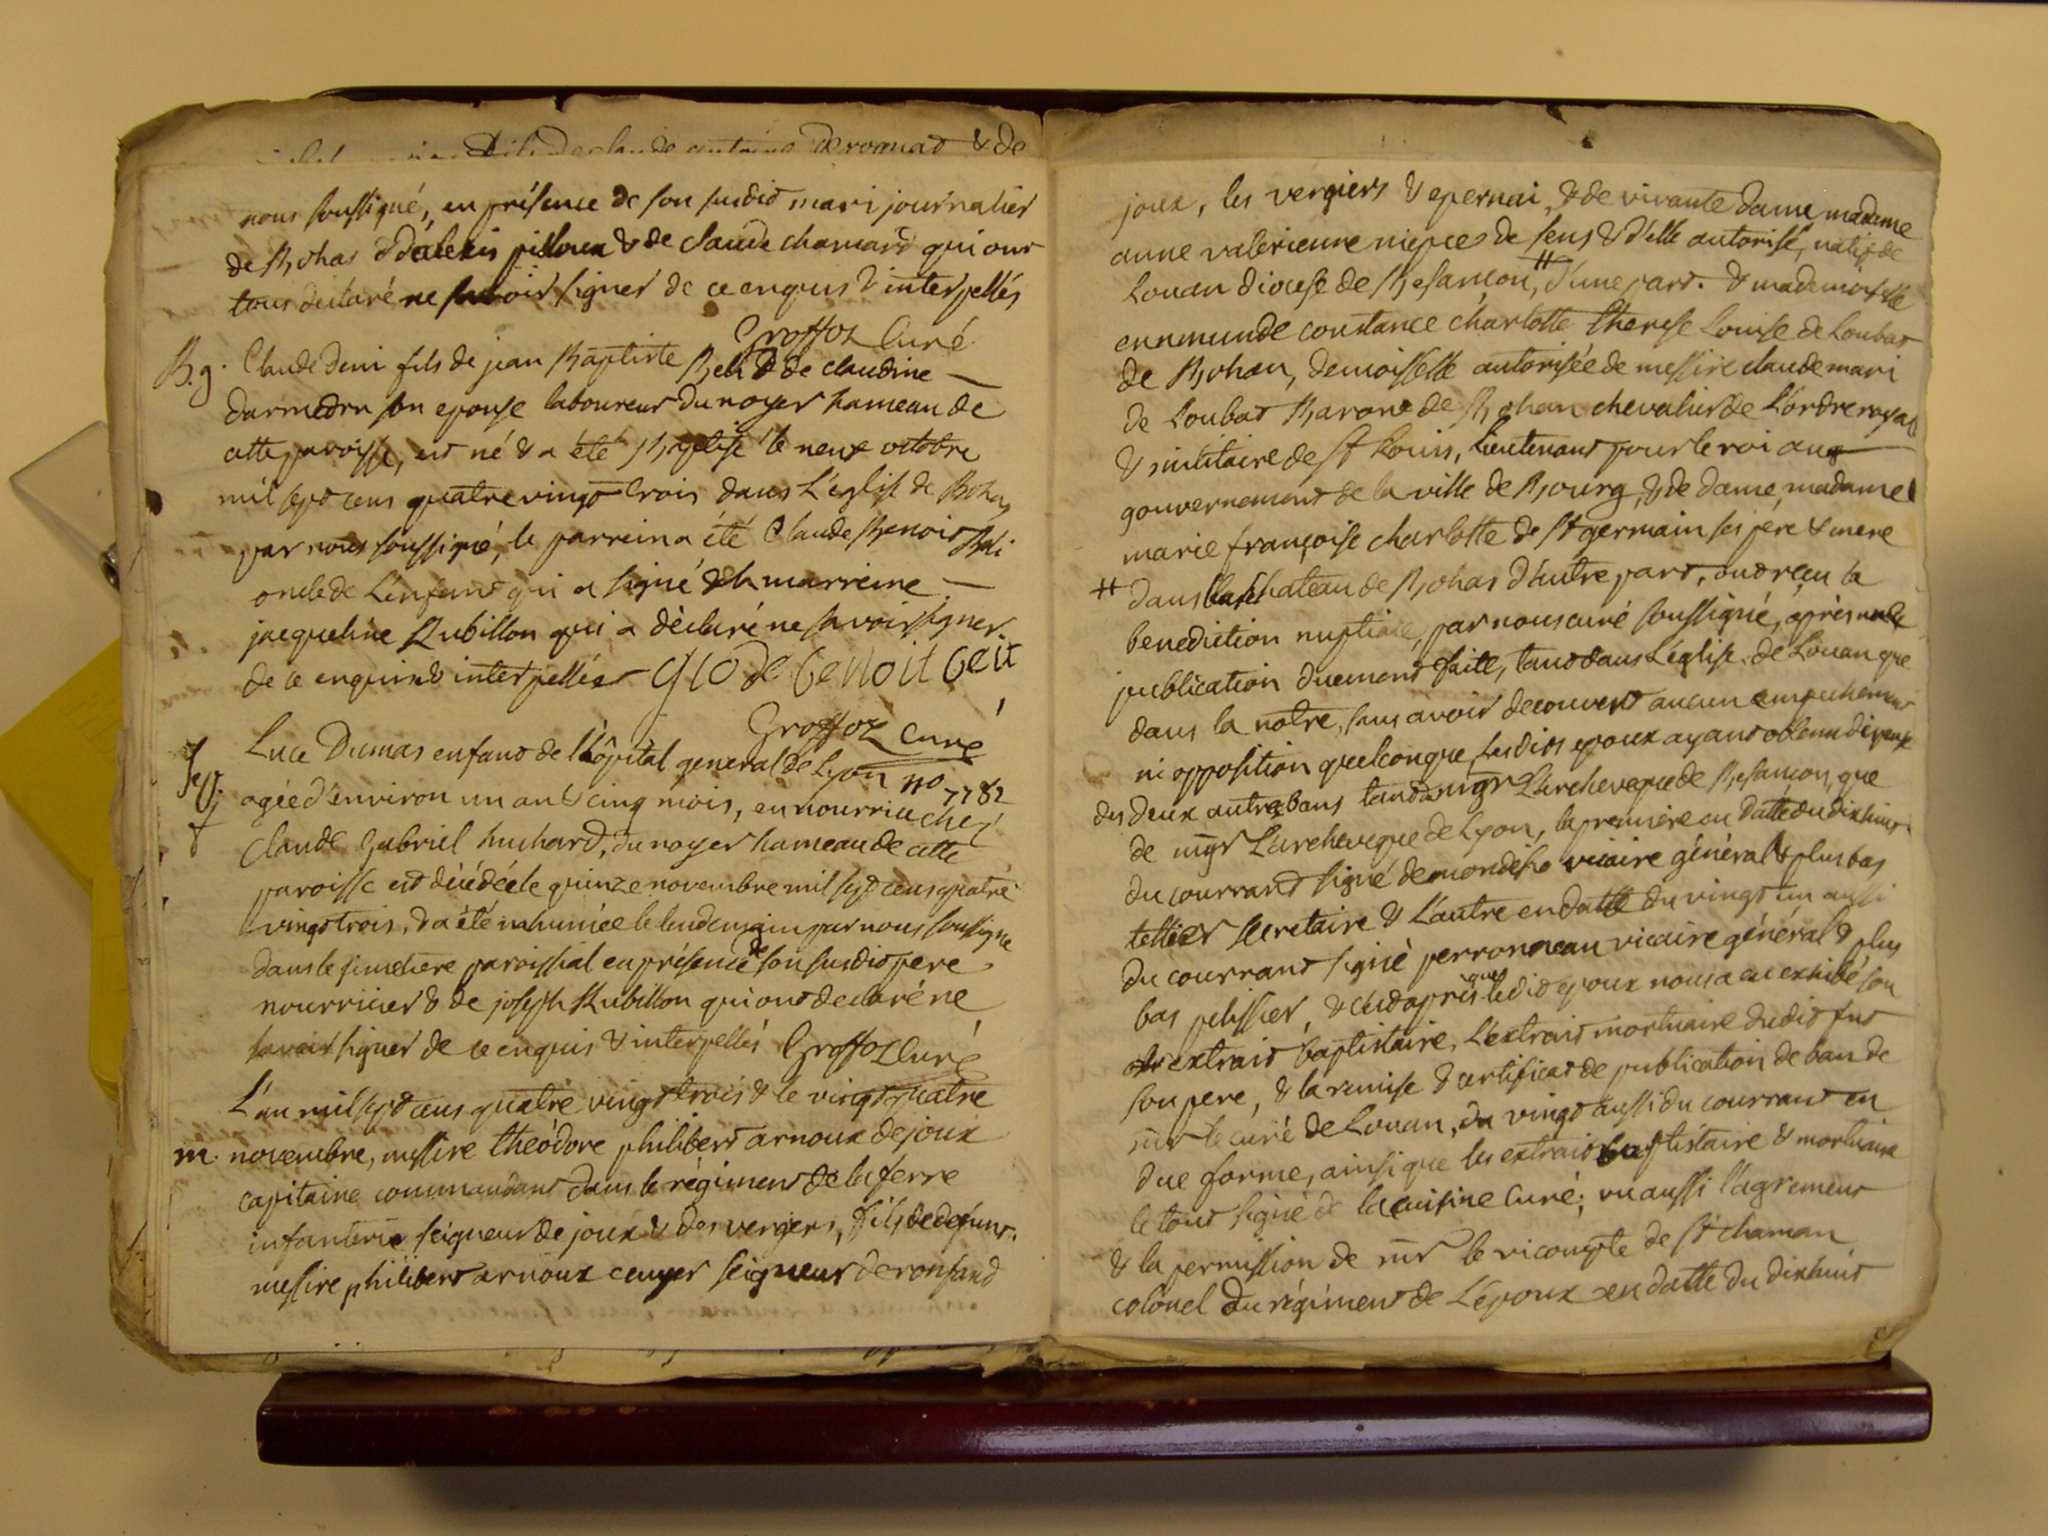 fils de claude antoine & de
nous soussigné, en présence de son susdit mari journalier
de Bohas & d'alexis pilloux & de claude chamard qui ont
tous declaré ne savoir signer de ce enquis & interpellés
Groffoz Curé
B.g. Claude Deni fils de jean Baptiste Beli & de claudine
darmedru son epouse laboureur du noyer hameau de
cette paroisse, est né & a été Baptisé le neuf octobre
mil sept cens quatre vingt trois dans L'église de Bohas
par nous soussigné, le parrein a été Claude Benoit Beli
oncle de L'enfant qui a signé & la marreine
jacqueline Rubillon qui a dèclaré ne savoir signer
de ce enquis & interpellée glode benoit beli
Groffoz Curé
Sep. f. Luce Dumas enfant de l'hôpital general de Lyon no 7782
agée d'environ un an & cinq mois, en nourrice chez
Claude Gabriel huchard, du noyer hameau de cette
paroisse est décédée le quinze novembre mil sept cens quatre
vingt trois, & a été inhumée le lendemain par nous soussigné
dans le simetiere paroissial en présence de son susdit pere
nourricier & de joseph Rubillon qui ont declaré ne
savoir signer de ce enquis & interpellés Groffoz Curé
L'an mil sept cens quatre vingt trois & le vingt quatre
m. novembre, messire theódore philibert arnoux de joux
capitaine commandant dans le régiment de la ferre
infanterie seigneur de joux & des vergers, fils de defunt
messire philibert arnoux ecuyer seigneur de ronfand
joux, les vergiers & epernai, & de vivante dame madame
anne valerienne niepces de sens & d'elle autorisé, natif de
Louan diocese de Besançon, # d'une part. & mademoiselle
ennemunde constance charlotte therese Louise de Loubat
de Bohan, demoisselle autorisée de messire claude mari
de Loubat Barone de Bohan chevalier de L'ordre royal
& militaire de st Louis, Lieutenant pour le roi au
gouvernement de la ville de Bourg, & de dame, madame
marie françoise charlotte de st germain ses pere & mere
# dans le chateau de Bohas d'autre part, ont reçu la
benediction nuptiale, par nous curé soussigné, après une
publication duement faite, tant dans L'église de Louan que
dans la notre, sans avoir decouvert aucun empechement
ni opposition quelconque, lesdits epoux ayant obtenu dispense
des deux autres bans tant de mgr L'archeveque de Besançon, que
de mgr L'archeveque de Lyon, la premiere en datte du dixhuit
du courrant signé demondesho vicaire général & plus bas
tellier secretaire & L'autre en datte du vingt un aussi
du courrant signé perronneau vicaire général & plus
bas pelissier, & c'est après que ledit epoux nous a eu exhibé son
extrait baptistaire, L'extrait mortuaire dudit fut
son pere, & la remise & certificat de publication de ban de
mr le curé de Louan, du vingt aussi du courrant en
due forme, ainsi que les extraits baptistaire & mortuaire
le tout signé de lacuisine Curé; vu aussi l'agrement
& la permission de mr le vicompte de st chaman
colonel du régiment de L'epoux en datte du dixhuit